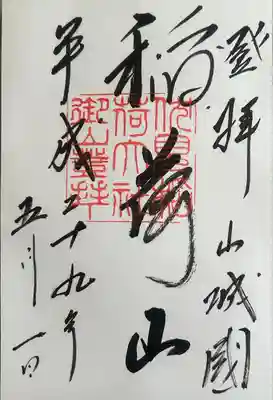 登拜 山城國
稲荷山
平成二十九年
五月一日
伏見稲
荷大社
御山登拝